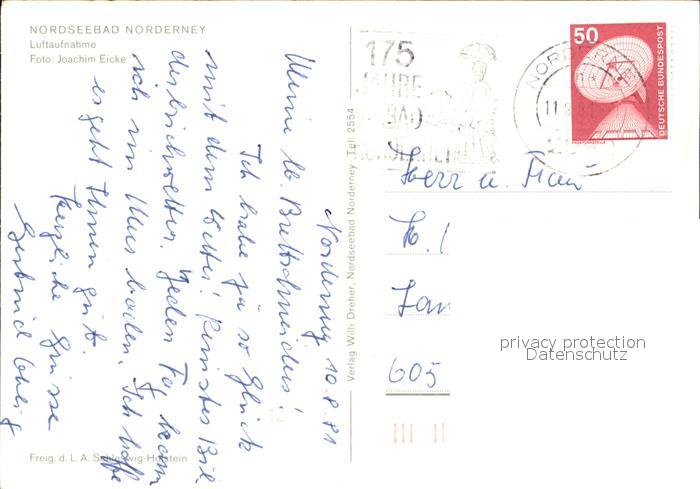 NORDSEEBAD NORDERNEY
Luftaufnahme
Foto: Joachim Eicke
Norderney 10.8.81
Meine lb. Brettschneiders!
Ich habe ja so Glück
mit dem Wetter!
Jeden Tag kann
ich im Meer baden. Ich hoffe
es geht Ihnen gut.
Herzliche Grüsse
Gertrud
Freig. d. L. A. Schleswig-Holstein
Verlag Willi Dreher, Nordseebad Norderney Tel. 2554
175
JAHRE
BAD
NORDERNEY
50
DEUTSCHE BUNDESPOST
Herr u. Frau
605
privacy protection
Datenschutz